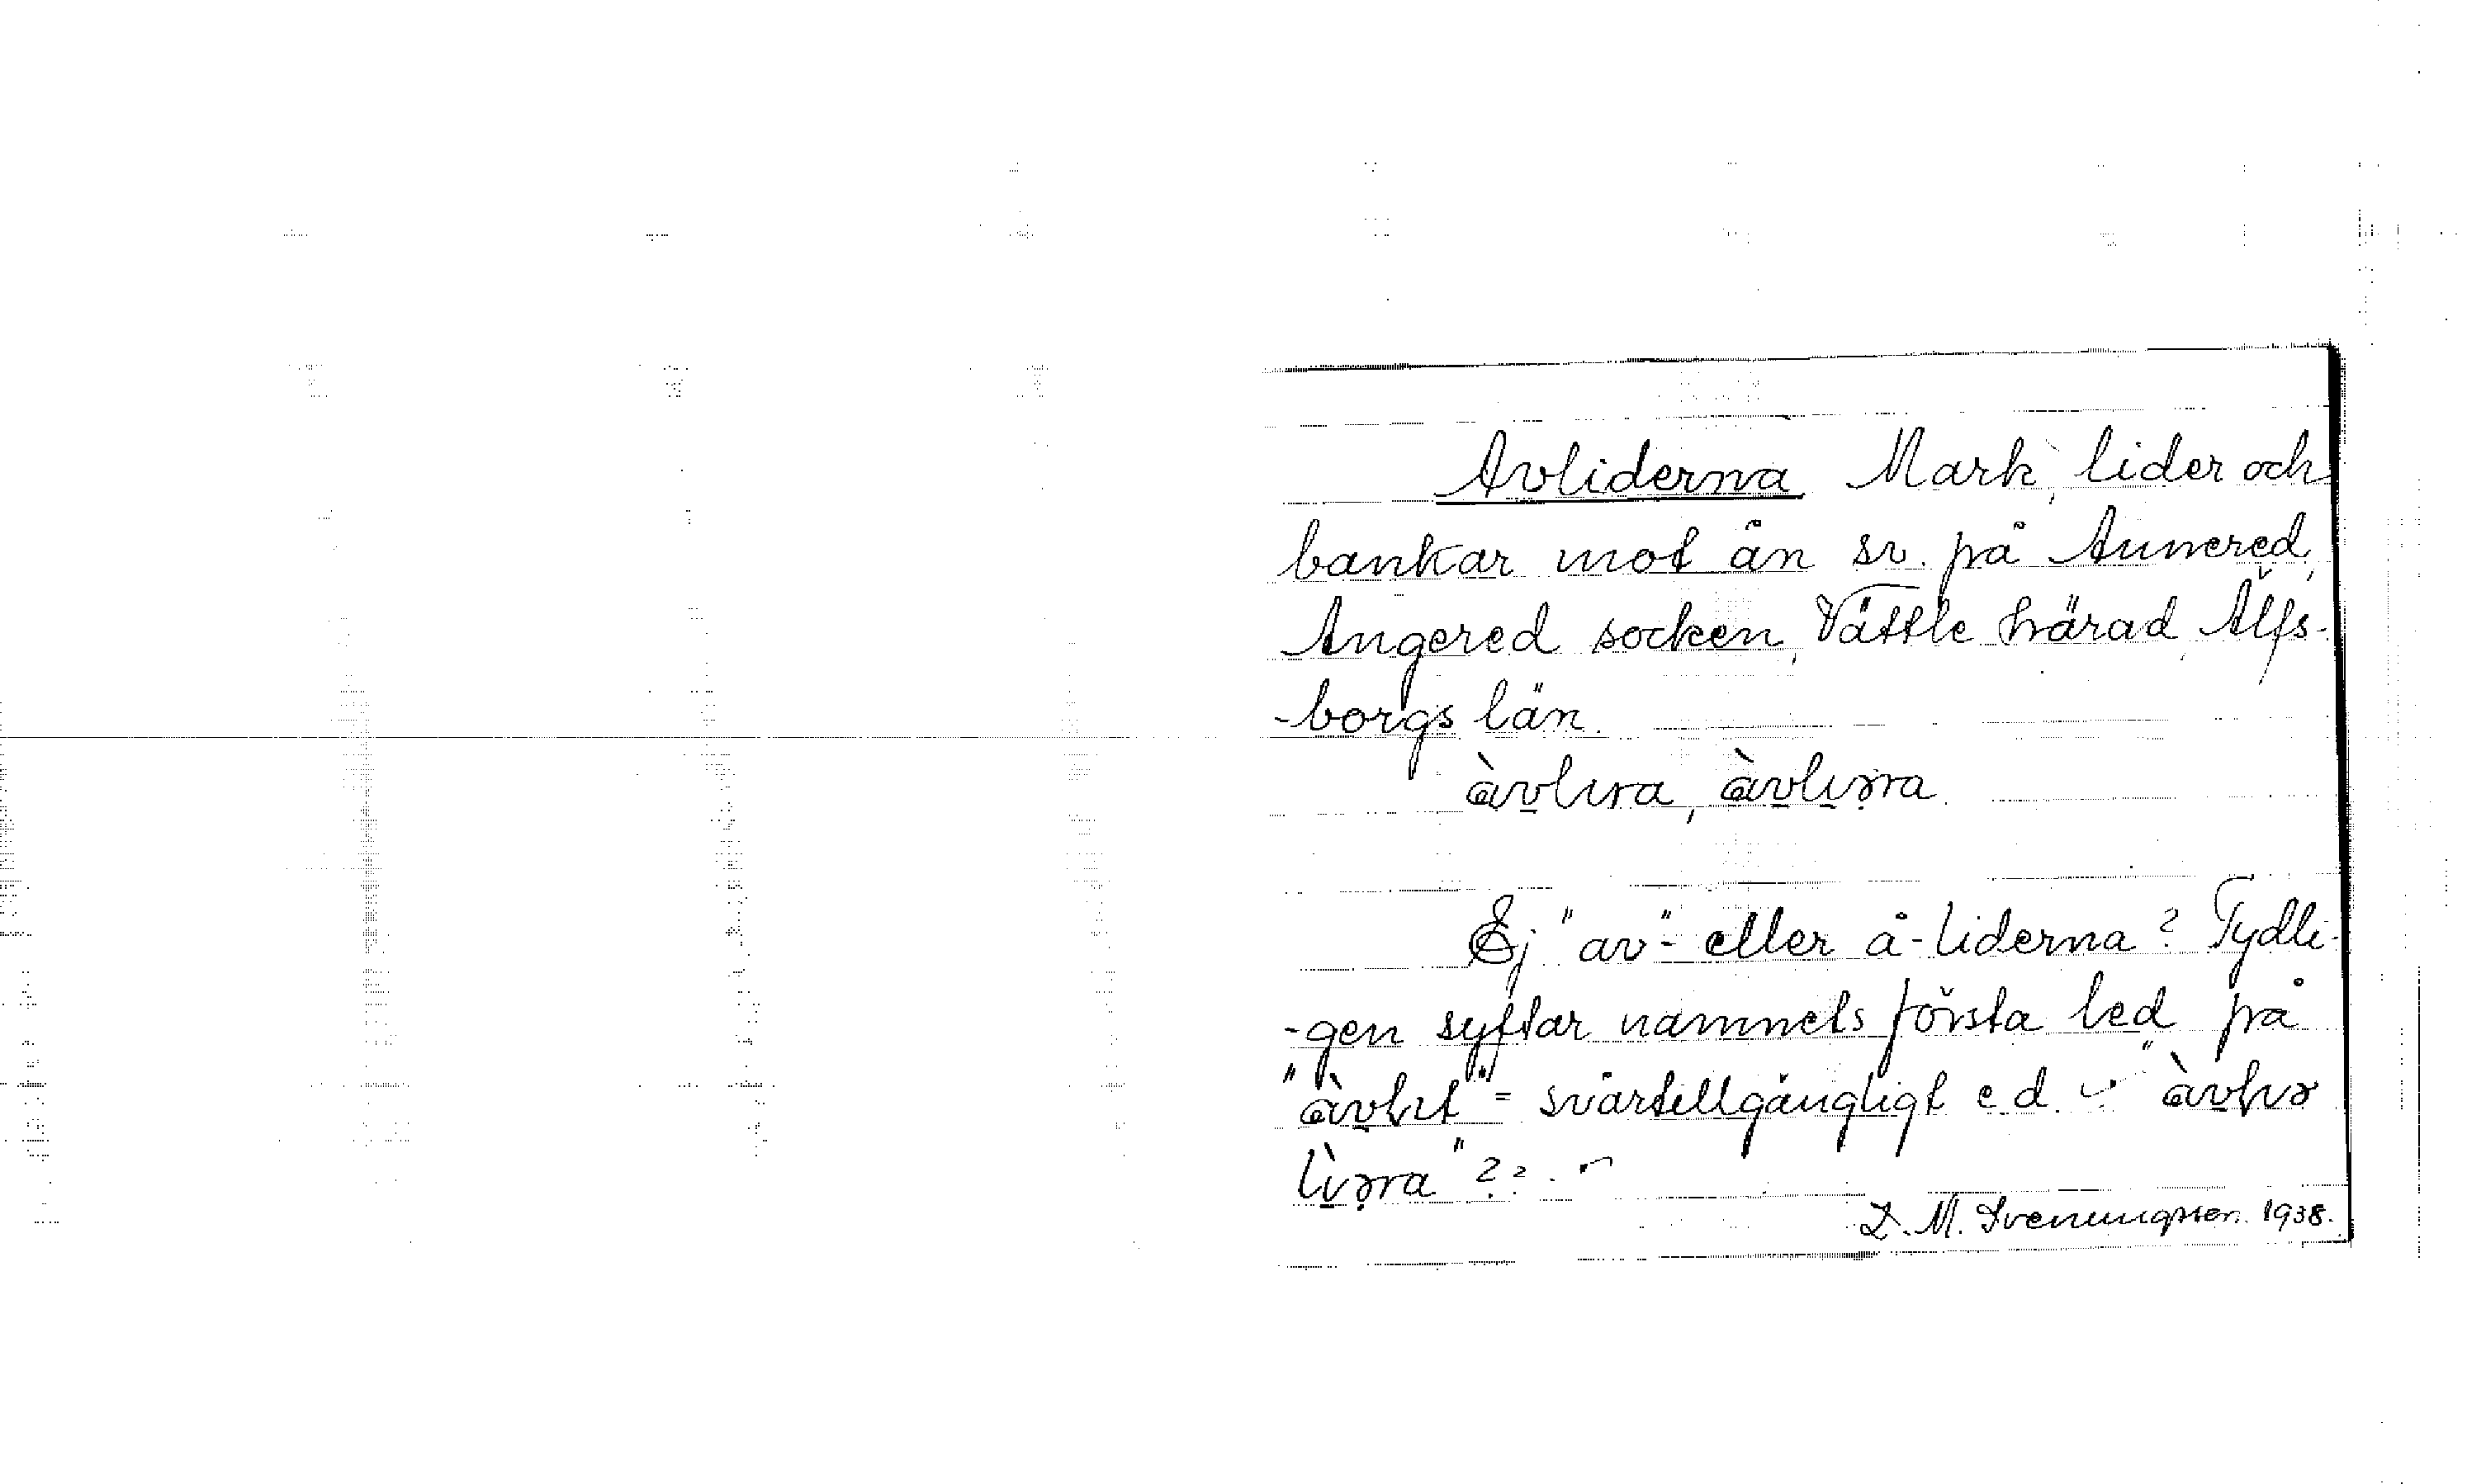 Avliderna Mark, lider och
bankar mot ån sv. på Aunered,
Angered socken, Vättle härad, Älfs-
-borgs län.
àvlıra, àvlıəra.
Ej "av"- eller å-liderna? Tydli-
-gen syftar namnets första led på
"àvlıt" = svårtillgängligt e.d. "àvlıə
lìəra"??.
M. Svenungsson. 1938.